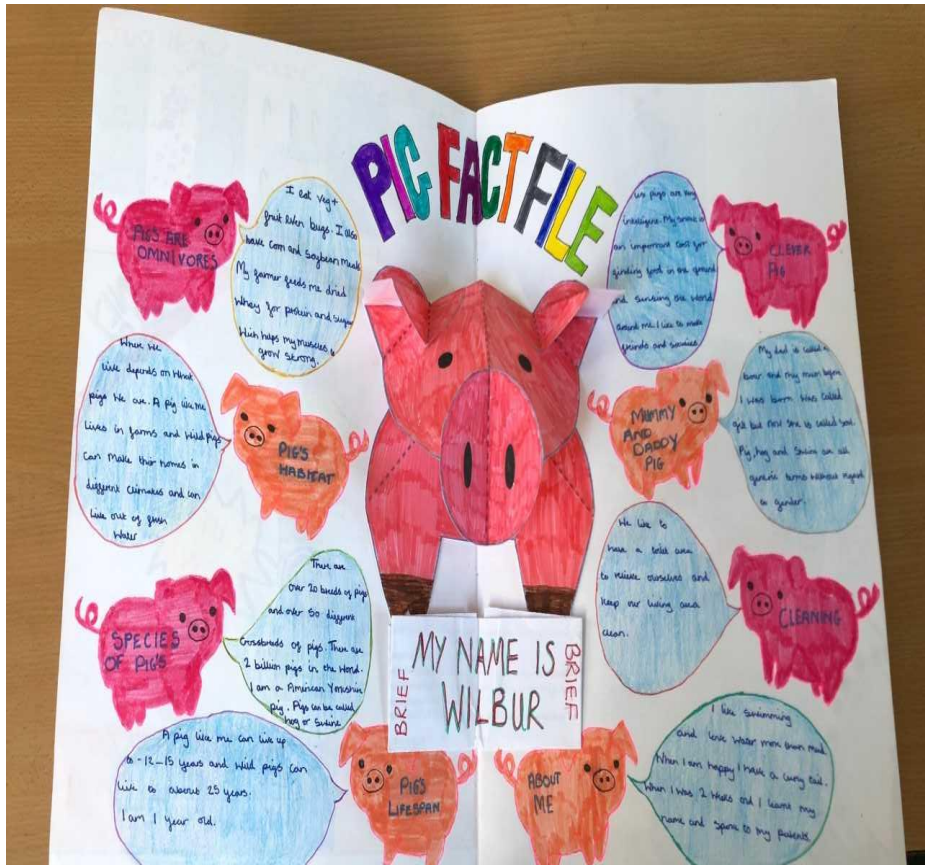 PIG FACT FILE
PIG'S ARE
OMNIVORES
I eat veg +
fruit even bugs. I also
have corn and soybean meals
My farmer feeds me dried
whey for protein and sugar
Which helps my muscles to
grow strong.
Where we
live depends on what
pigs we are. A pig like me
lives in farms and wild pigs
can make thir homes in
different climates and can
live out of fresh
water
PIG'S
HABITAT
SPECIES
OF PIG'S
There are
over 20 breeds of pigs
and over 50 different
crossbreeds of pigs. There are
2 billion pigs in the world.
I am a American Yorkshire
pig. Pigs can be called
hog or swine
A pig like me can live up
to -12-15 years and wild pigs can
live to about 25 years.
I am 1 year old.
PIG'S
LIFESPAN
BRIEF
MY NAME IS
WILBUR
BRIEF
us pigs are very
My snout is
an important tool for
finding food in the ground
and sensing the world
around me. I like to make
friends and
CLEVER
PIG
MUMMY
AND
DADDY
PIG
My dad is called a
boar and my mum before
I was born was called
but now she is called sow.
Pig, hog and swine are all
generic terms without regard
to gender.
We like to
have a toilet area
to relieve ourselves and
keep our living area
clean.
CLEANING
ABOUT
ME
I like swimming
and love water more than mud
When I am happy I have a curly tail.
When I was 2 weeks old I learnt my
name and spoke to my parents